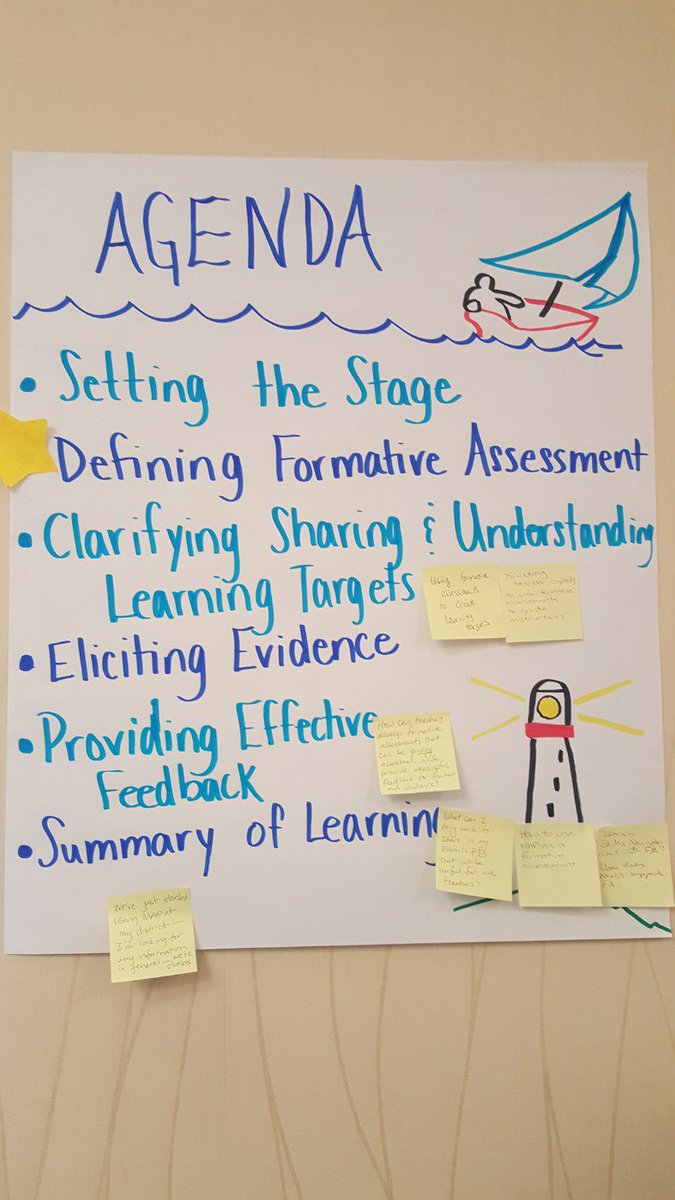 AGENDA
• Setting the Stage
Defining Formative Assessment
• Clarifying Sharing & Understanding
Learning Targets
Using formative
assessments
to create
learning
targets
Building
teacher capacity
to use formative
assessments
to guide
instruction
• Eliciting Evidence
• Providing Effective
Feedback
How can teachers
develop formative
assessments that
can be
provide
feedback to
students?
• Summary of Learning
What can I
bring back to
share in my
that will be
useful for all
teachers?
How to use
MAP as a
formative
assessment
Skills Navigator
How does
FA?
We've just started
using MAP at
my district
I'm looking for
any information
in general — we're
clueless